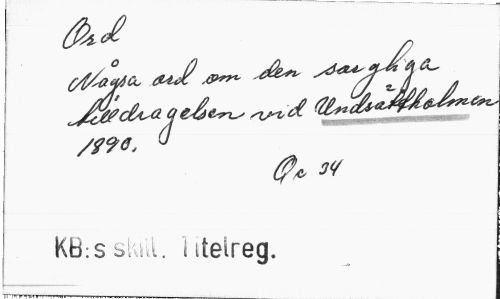 Ord
Några ord om den sorgliga
tilldragelsen vid Undsättholmen
1890.
Qc 34
KB:s skill. Titelreg.